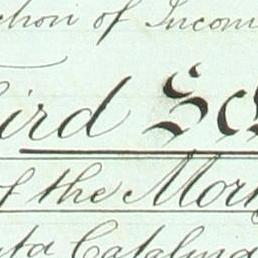 ction of Incom
ird Sc
of the Mor
ta Catalina